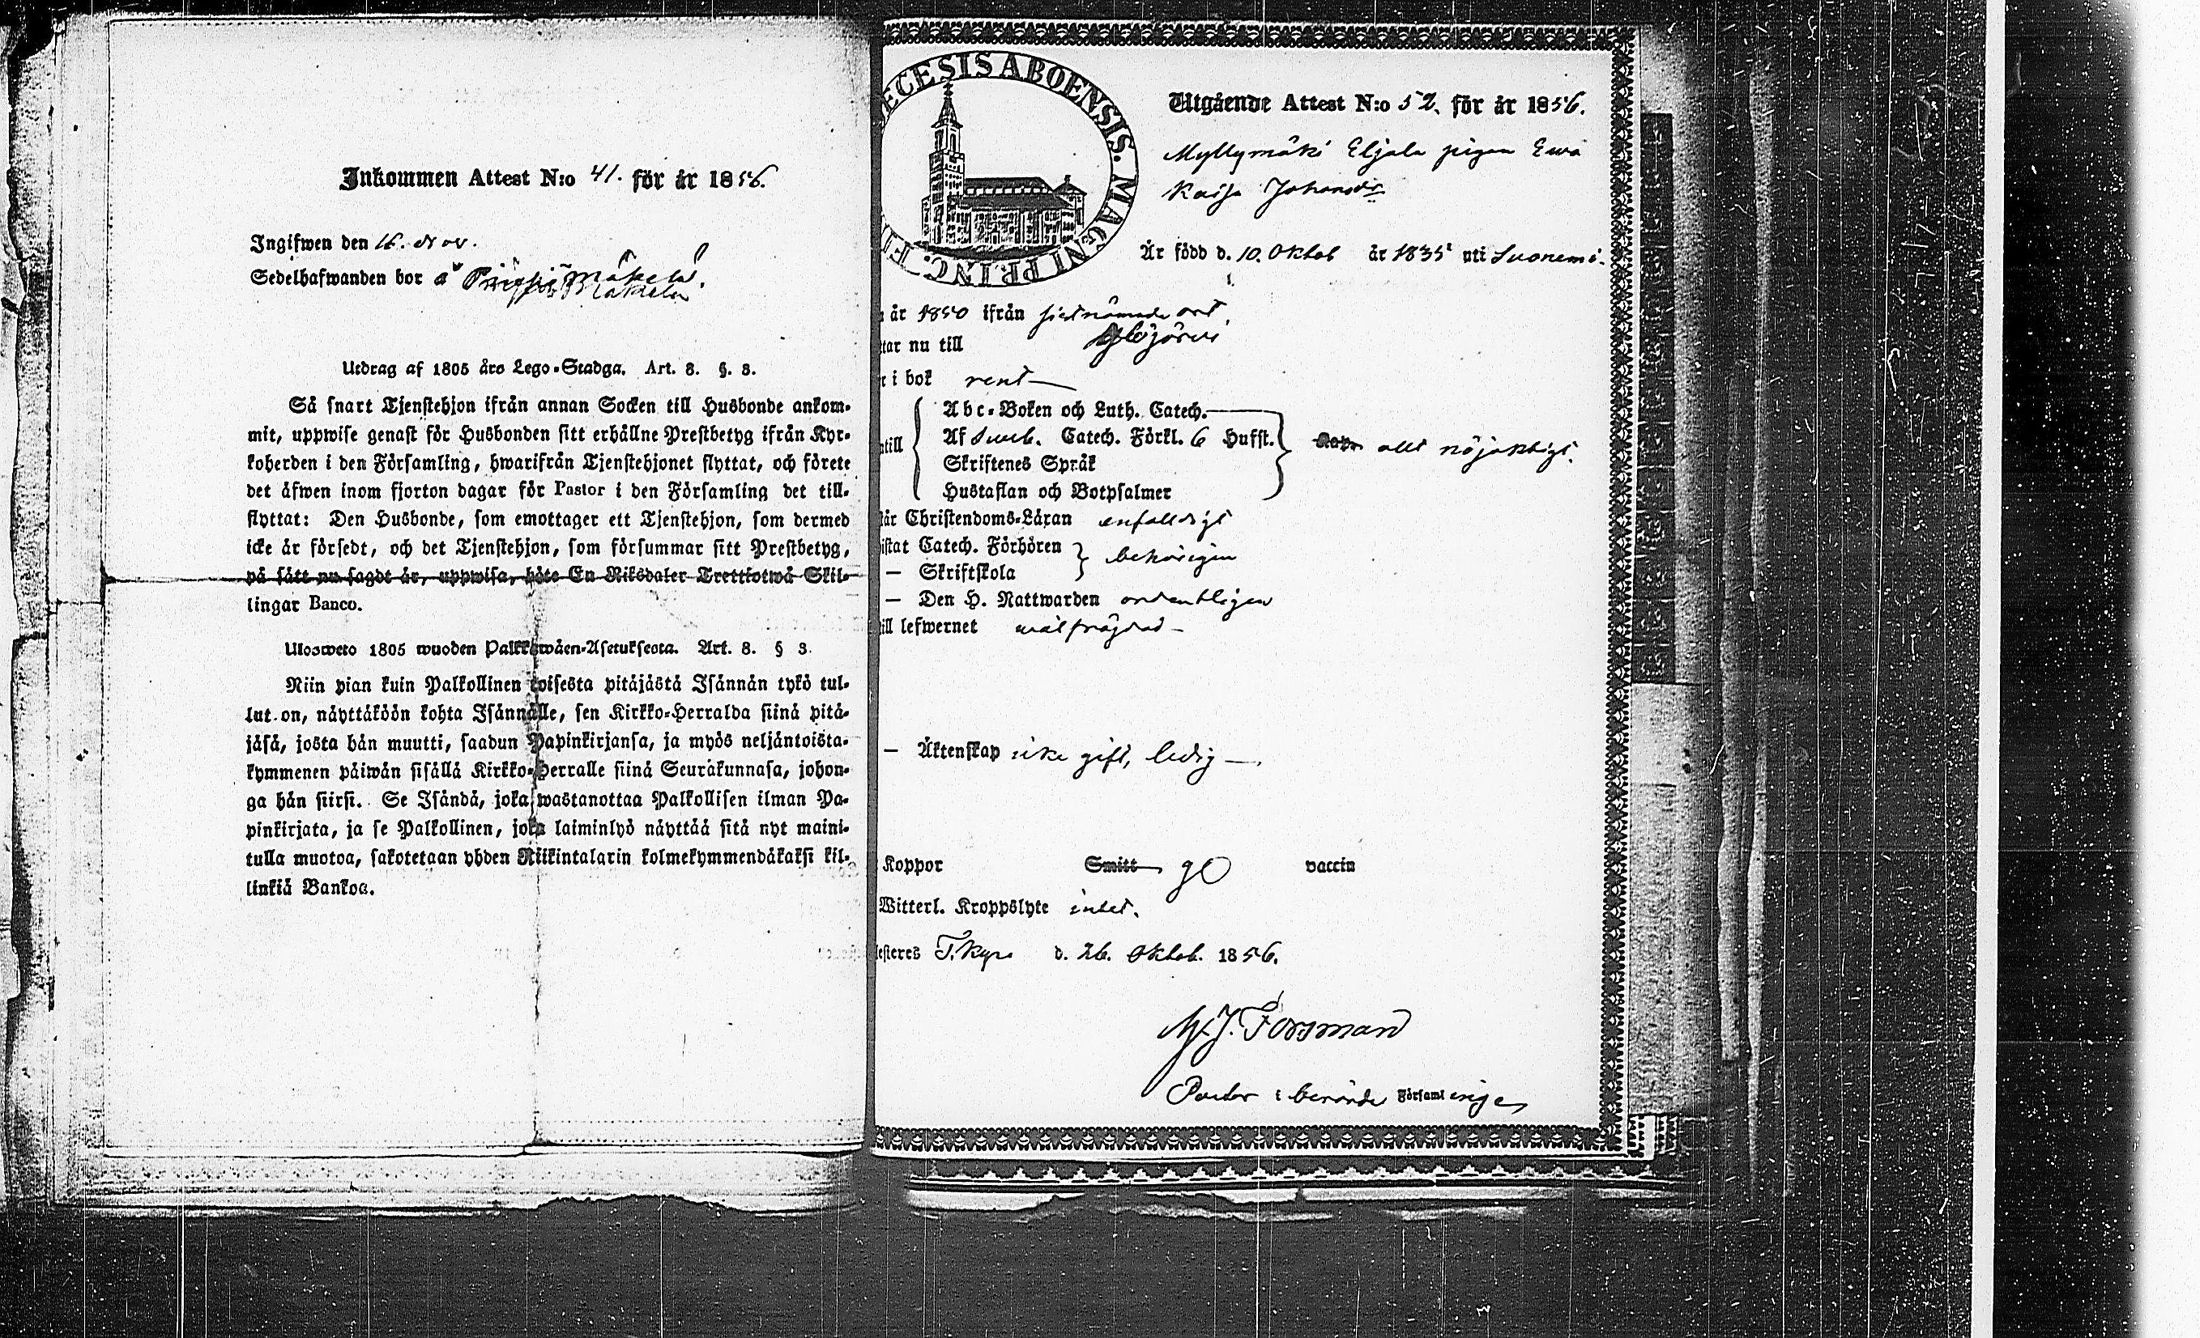 Inkommen Attest N:o 41. för år 1856.
Ingifwen den 16. Nov.
Sedelhafwanden bor å Mäkelä.
Utdrag af 1805 års Lego-Stadga. Art. 8. §. 3.
Så snart Tjenstehjon ifrån annan Socken till Husbonde ankom-
mit, uppwise genast för Husbonden sitt erhållne Prestbetyg ifrån Kyr-
koherden i den Församling, hwarifrån Tjenstehjonet flyttat, och förete
det äfwen inom fjorton dagar för Pastor i den Församling det till-
flyttat: Den Husbonde, som emottager ett Tjenstehjon, som dermed
icke är försedt, och det Tjenstehjon, som försummar sitt Prestbetyg,
på sätt nu sagdt är, uppwisa, böte En Riksdaler Trettiotwå Skil-
lingar Banco.
Ulosweto 1805 wuoden Palkkawäen-Asetuksesta. Art. 8. § 3.
Niin pian kuin Palkollinen toisesta pitäjästä Isännän tykö tul-
lut on, näyttäköön kohta Isännälle, sen Kirkko-Herralda siinä pitä-
jäsä, josta hän muutti, saadun Papinkirjansa, ja myös neljäntoista-
kymmenen päiwän sisällä Kirkko-Herralle siinä Seurakunnasa, johon-
ga hän siirsi. Se Isändä, joka wastanottaa Palkollisen ilman Pa-
pinkirjata, ja se Palkollinen, joka laiminlyö näyttää sitä nyt maini-
tulla muotoa, sakotetaan yhden Riikintalarin kolmekymmendäkaksi kil-
linkiä Bankoa.
ECESIS ABOENSIS. MAGNI PRINC. FI
Utgående Attest N:o 52. för år 1856.
Myllymäki Eljala pigan Ewa
Kaisa Johansdr
Är född d. 10. Oktob år 1835 uti Suoniemi.
år 1850 ifrån sistnämnde ort,
tar nu till Ylöjärvi
i bok rent
Abc-Boken och Luth. Catech.
Af Sweb. Catech. Förkl. 6 Hufst.
ntill allt nöjaktigt.
Skriftenes Språk
Hustaflan och Botpsalmer
tår Christendoms-Läran enfaldigt
istat Catech. Förhören
behörigen
— Skriftskola
— Den H. Nattwarden ordentligen
ill lefwernet wälfrägdad —
— Äktenskap icke gift, ledig —.
Koppor Smitt go vaccin
Witterl. Kroppslyte intet.
esteres T.kyro d. 26. Oktob. 1856.
M.J. Forsman
Pastor i berörde Församlingen